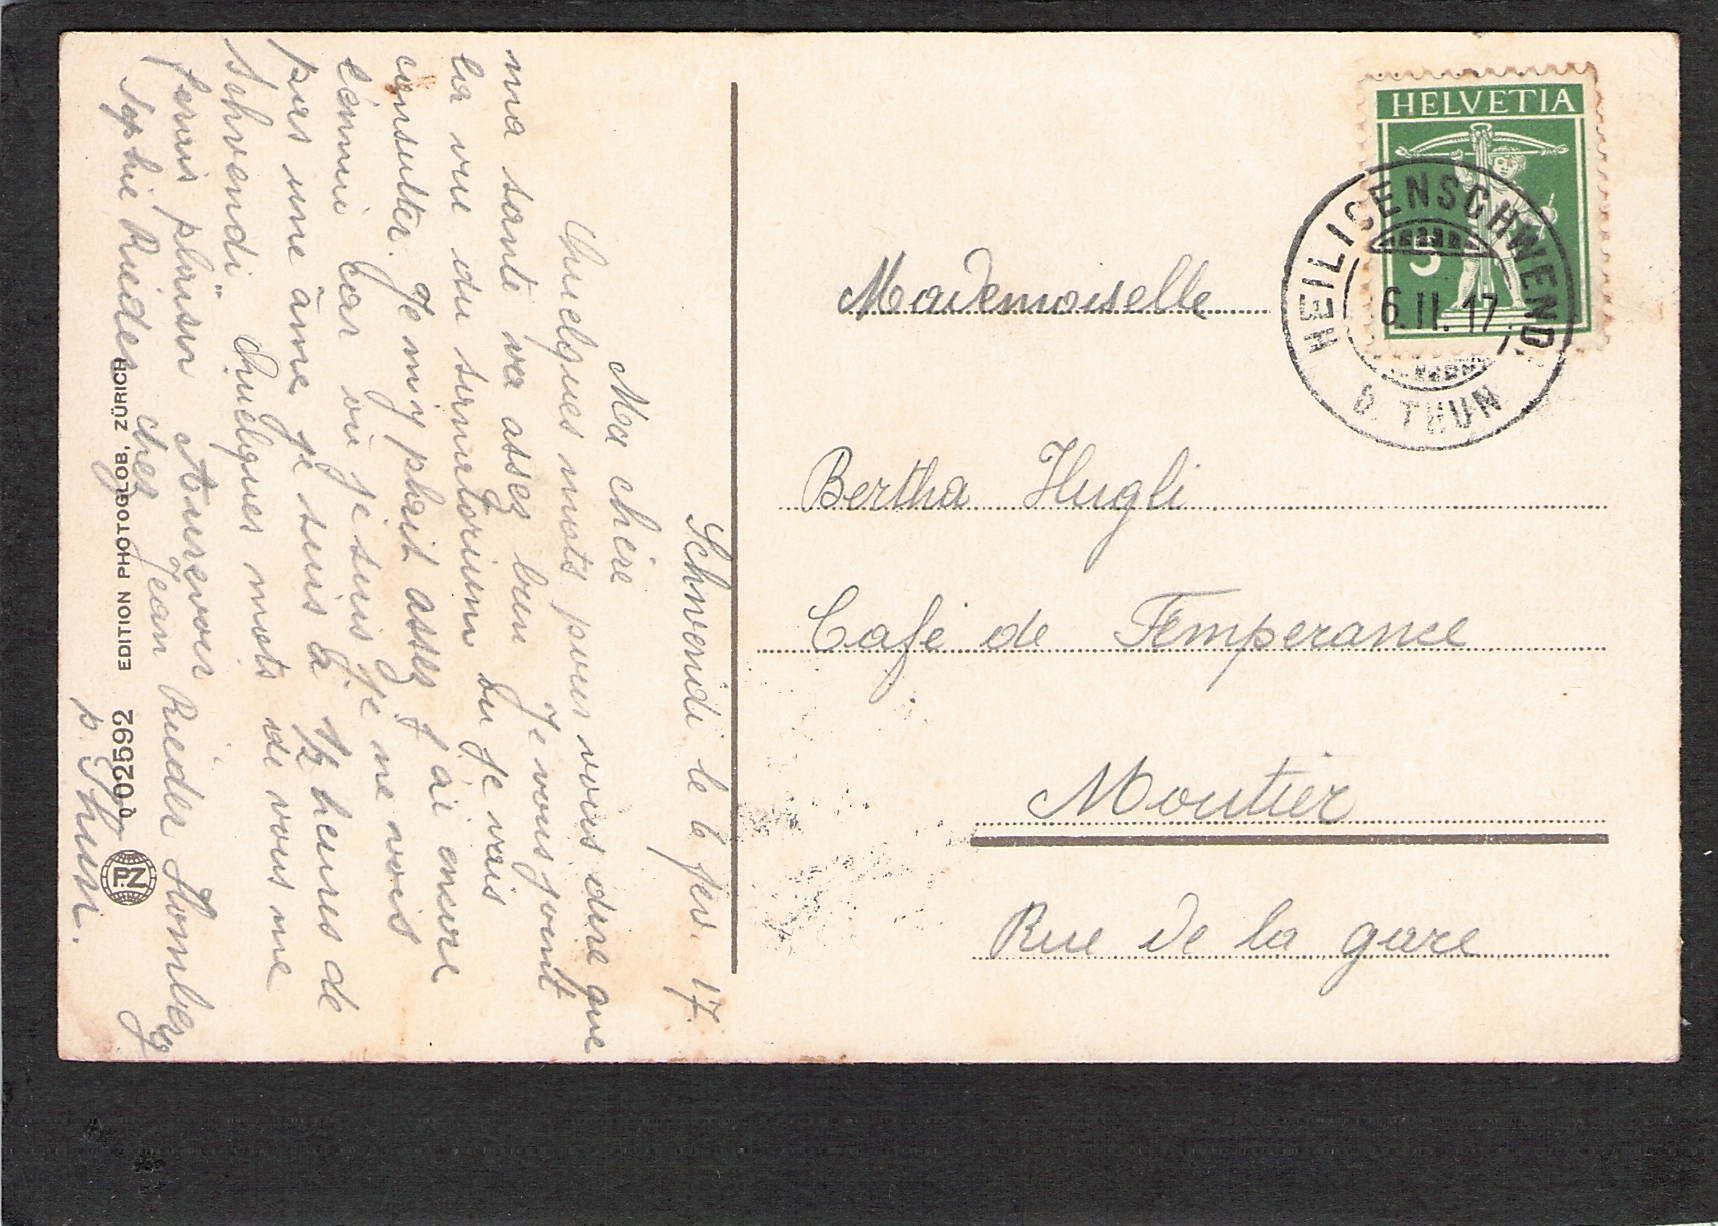 Schwendi le 6 fev. 17.
Ma chère
Quelques mots pour vous dire que
ma santé va assez bien Je vous joint
la vue du sanatorium Du je vais
consulter. Je m'y plait assez j ai encore
l'ennui Car ou je suis je ne vois
pas une âme je suis à 1/2 heures de
Schwendi Quelques mots de vous me
ferais plaisir Aurevoir
Sophie Rieder chez Jean Rieder Homberg
p. Thun.
EDITION PHOTOGLOB, ZÜRICH
002592
PZ
HELVETIA
5
HEILIGENSCHWENDI
6.II.17
B. THUN
Mademoiselle
Bertha Hugli
Café de Temperance
Moutier
Rue de la gare